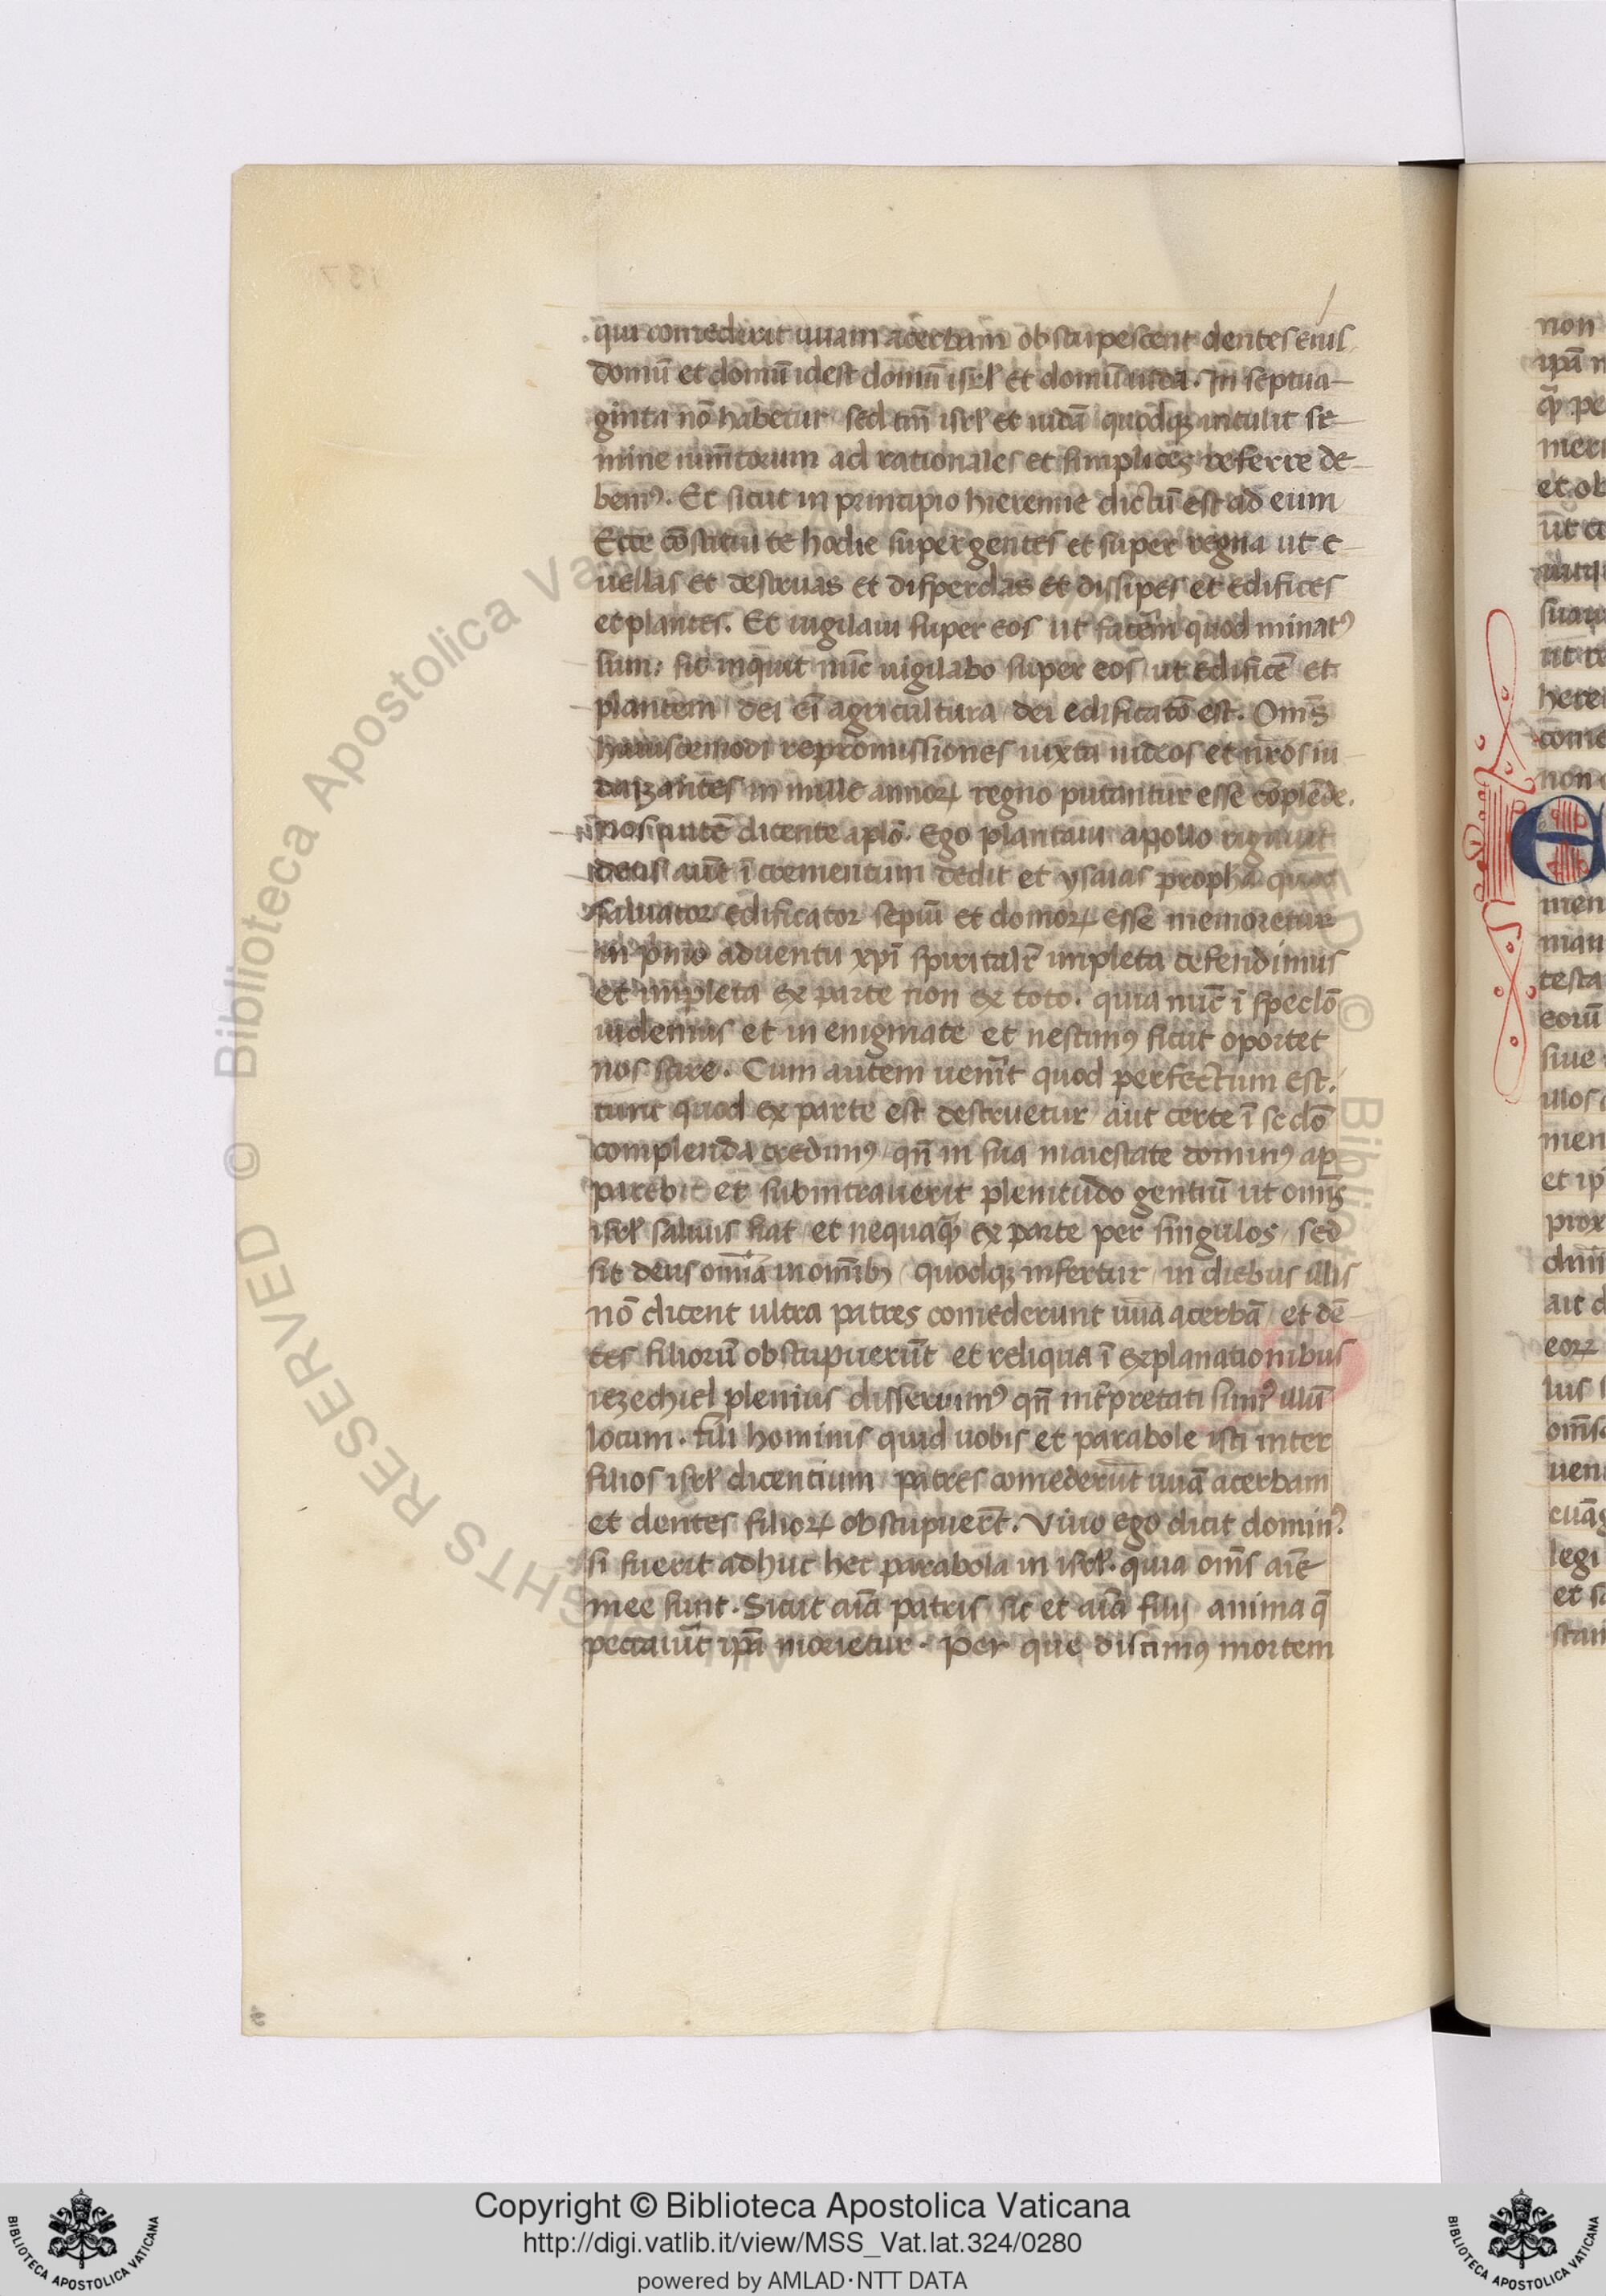 qui comederit uuam acerbam obstupescent dentes eius
domū et domū idest domū isrl̄ et domū iuda. In septua
ginta nō habetur sed tm̄ isrl̄ et iudā quodqꝫ intulit se
mine iumētorum ad rationales et simplices referre de
bemꝰ. Et sicut in principio hieremie dictū est ad eum
Ecce cōstitui te hodie super gentes et super regna ut e
uellas et destruas et disperdas et dissipes et edifices
et plantes. Et uigilaui super eos ut facerem quod minatꝰ
sum: sic inquit nūc uigilabo super eos ut edificē et
plantem dei eī agricultura dei edificatō est. Om̄s
huiuscemodi repromissiones iuxta iudeos et nr̄os iu
daizantes in mille annoꝝ regno putantur esse cōplēde.
nos autē dicente aplō. Ego plantaui apollo rigauit
deus aūt īcrementum dedit et ysaias propha quos
saluator edificator sepiū et domoꝝ esse memoretur
in pͥmo aduentu xp̄i spiritalr̄ impleta defendimus
et impleta ex parte non ex toto. quia nūc ī speclō
uidemus et in enigmate et nescimꝰ sicut oportet
nos scire. Cum autem uenīt quod perfectum est.
tunc quod ex parte est destruetur aut certe ī sc̄dō
complenda credimꝰ qn̄ in sua maiestate dominꝰ ap
parebit et subintrauerit plenitudo gentiū ut om̄s
isrl̄ saluus fiat et nequaqͣꝫ ex parte per singulos sed
sit deus omīa in omībꝫ quodqꝫ infertur in diebus illis
nō dicent ultra patres comederunt uuā acerbā et dē
tes filiorū obstupuerūt et reliqua ī explanationibus
iezechiel plenius disseruimꝰ qn̄ int̄pretati sumꝰ illū
locum. Fili hominis quid uobis et parabole isti inter
filios isrl̄ dicentium patres comederūt uuā acerbam
et dentes filioꝝ obstupuer̄t. Viuo ego dicit dominꝰ.
si fuerit adhuc hec parabola in isrl̄. quia om̄s aīe
mee sunt. Sicut aīa patris sic et aīa filij anima q̄
peccauīt ip̄a morietur. Per que discimꝰ mortem
non
ipā
merı
et ob
ut
ut re
here
come
non
E
men
man
testa
eorū
siue
men
et ip
prox
ait d
eoꝝ
luis
om̄s
legi
Copyright © Biblioteca Apostolica Vaticana
http://digi.vatlib.it/view/MSS_Vat.lat.324/0280
powered by AMLAD·NTT DATA
BIBLIOTECA APOSTOLICA VATICANA
BIBLIOTECA APOSTOLICA VATICANA